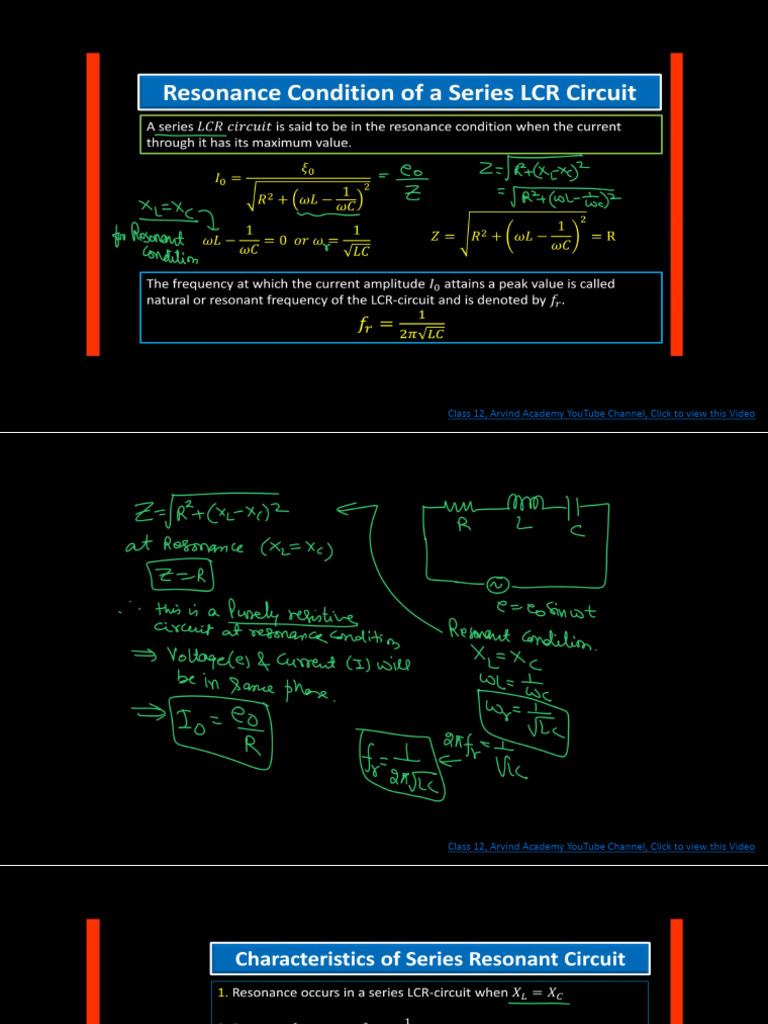 Resonance Condition of a Series LCR Circuit
A series LCR circuit is said to be in the resonance condition when the current
through it has its maximum value.
I₀ = ξ₀ / √(R² + (ωL − 1/ωC)²) = e₀/Z
Z = √(R² + (X_L − X_C)²)
= √(R² + (ωL − 1/ωC)²)
X_L = X_C
for Resonant
Condition
ωL − 1/ωC = 0 or ω_r = 1/√LC
Z = √(R² + (ωL − 1/ωC)²) = R
The frequency at which the current amplitude I₀ attains a peak value is called
natural or resonant frequency of the LCR-circuit and is denoted by f_r.
f_r = 1/2π√LC
Class 12, Arvind Academy YouTube Channel, Click to view this Video
Z = √R² + (X_L − X_C)²
at Resonance (X_L = X_C)
Z = R
∴ this is a Purely resistive
circuit at resonance condition
⇒ Voltage(e) & Current (I) will
be in same phase.
⇒ I₀ = e₀/R
R L C
~
e = e₀ sin ωt
Resonant Condition.
X_L = X_C
ωL = 1/ωC
ω_r = 1/√LC
2πf_r = 1/√LC
f_r = 1/2π√LC
Class 12, Arvind Academy YouTube Channel, Click to view this Video
Characteristics of Series Resonant Circuit
1. Resonance occurs in a series LCR-circuit when X_L = X_C